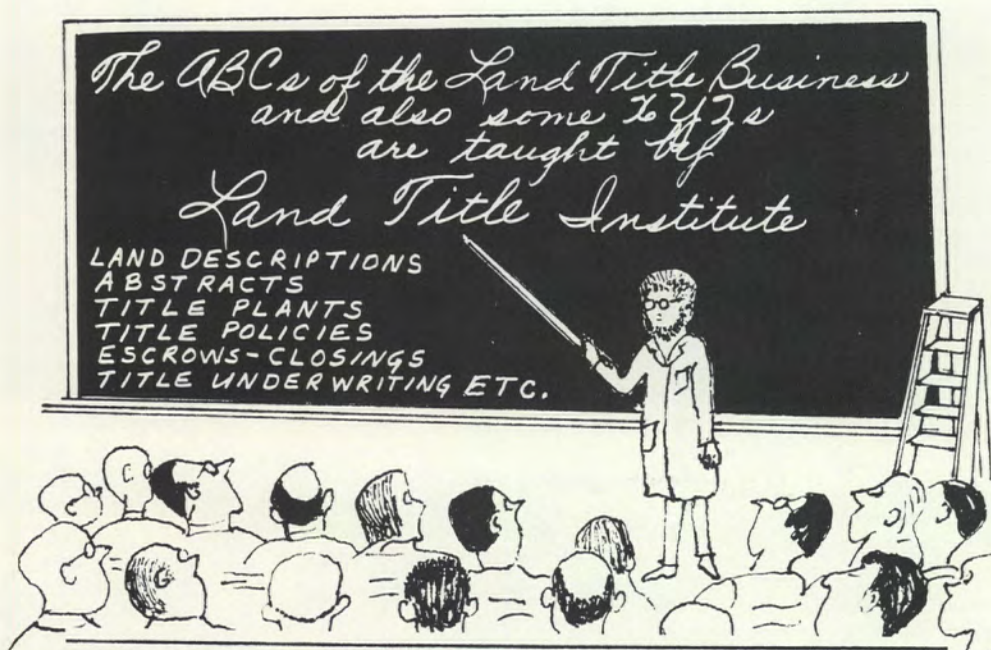 The ABCs of the Land Title Business
and also some XYZs
are taught by
Land Title Institute
LAND DESCRIPTIONS
ABSTRACTS
TITLE PLANTS
TITLE POLICIES
ESCROWS-CLOSINGS
TITLE UNDERWRITING ETC.